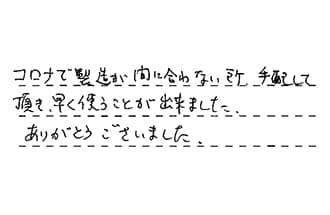 コロナで製造が間に合わない所、手配して
頂き、早く使うことが出来ました。
ありがとうございました。